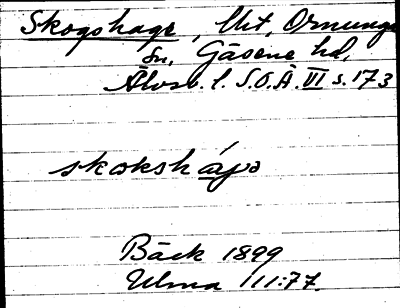 Skogshage, Utt, Ornunga
sn, Gäsene hd,
Älvsb. l. S.O.Ä. VI s. 173
skokshágə
Bäck 1899
Ulma 111:77